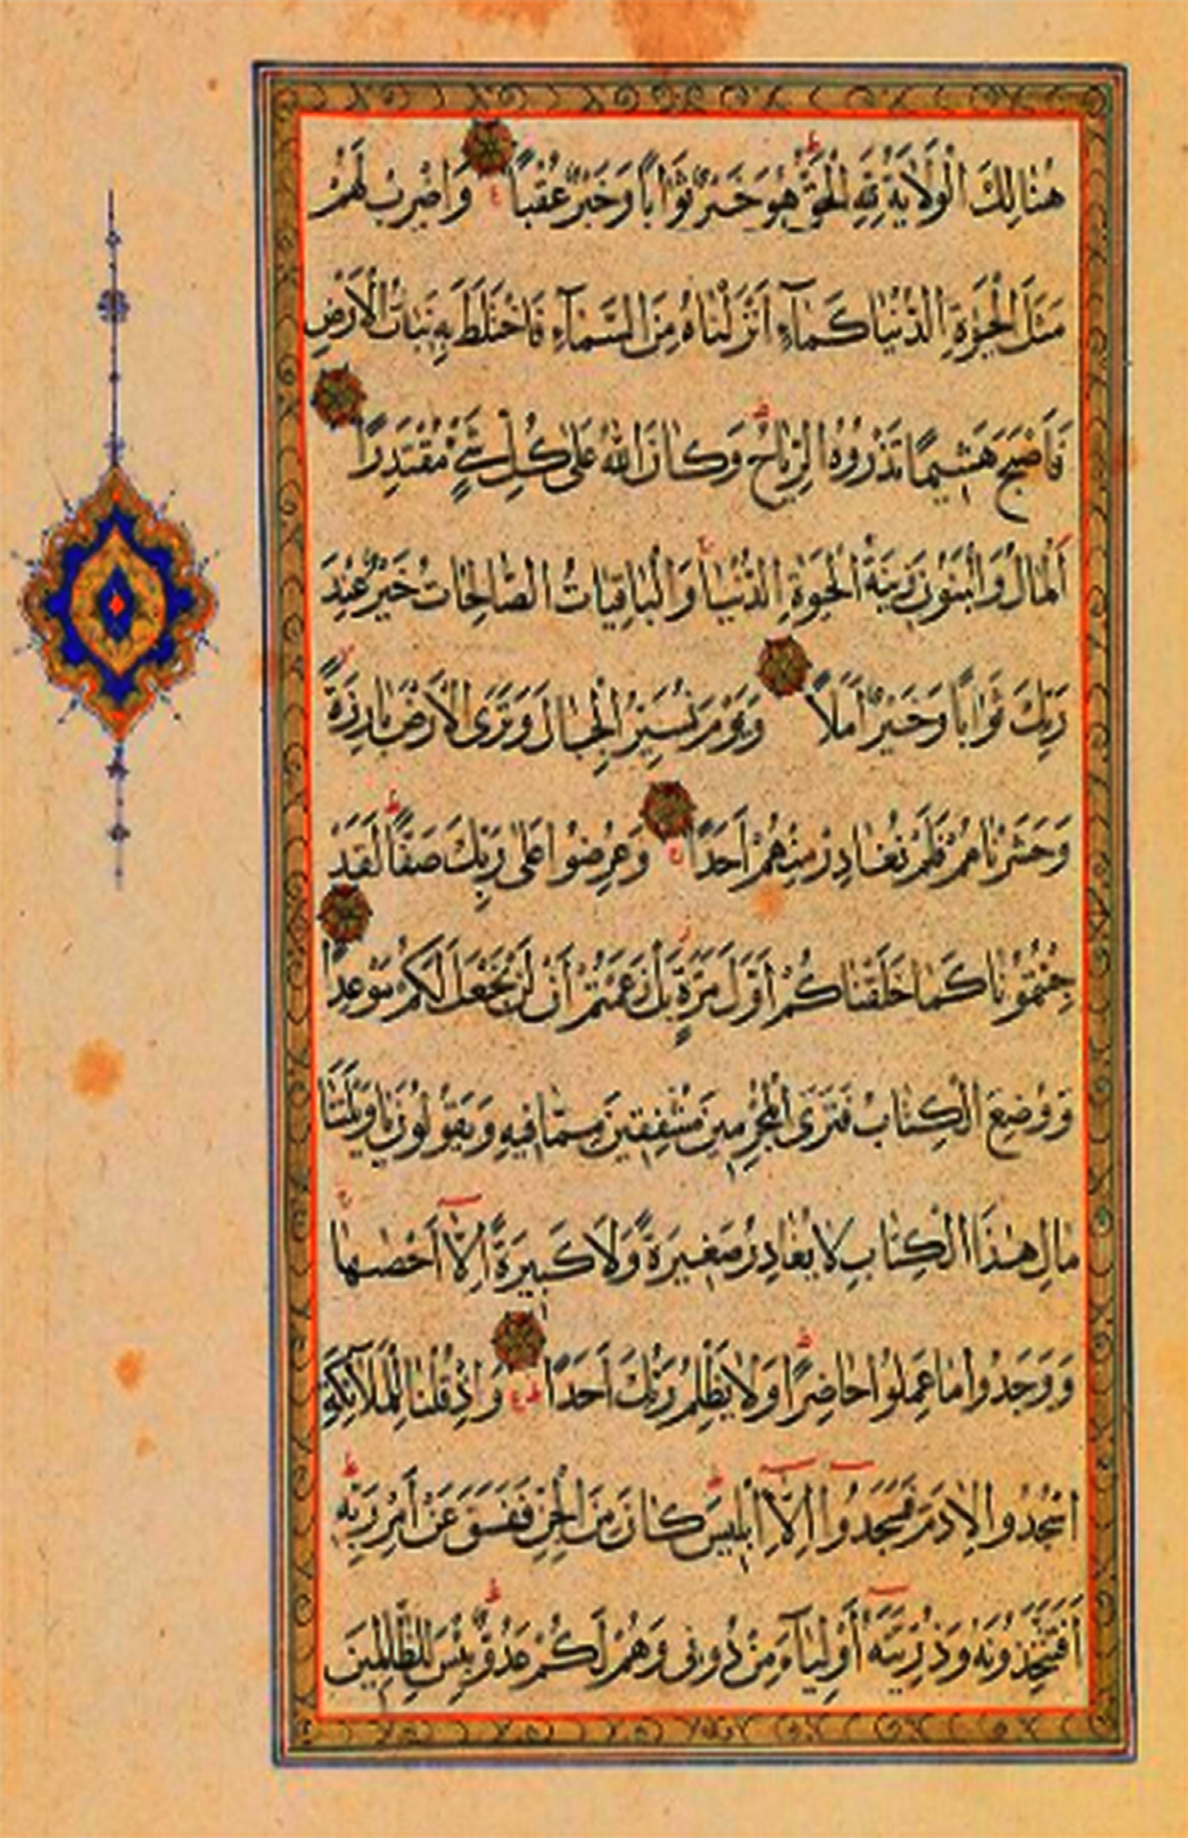 هُنَالِكَ الْوَلَايَةُ لِلَّهِ الْحَقِّ هُوَ خَيْرٌ ثَوَابًا وَخَيْرٌ عُقْبًا وَاضْرِبْ لَهُمْ
مَثَلَ الْحَيٰوةِ الدُّنْيَا كَمَآءٍ أَنْزَلْنَاهُ مِنَ السَّمَآءِ فَاخْتَلَطَ بِهِ نَبَاتُ الْأَرْضِ
فَأَصْبَحَ هَشِيمًا تَذْرُوهُ الرِّيَاحُ وَكَانَ اللّٰهُ عَلٰى كُلِّ شَيْءٍ مُقْتَدِرًا
اَلْمَالُ وَالْبَنُونَ زِينَةُ الْحَيٰوةِ الدُّنْيَا وَالْبَاقِيَاتُ الصَّالِحَاتُ خَيْرٌ عِنْدَ
رَبِّكَ ثَوَابًا وَخَيْرٌ أَمَلًا وَيَوْمَ نُسَيِّرُ الْجِبَالَ وَتَرَى الْأَرْضَ بَارِزَةً
وَحَشَرْنَاهُمْ فَلَمْ نُغَادِرْ مِنْهُمْ أَحَدًا وَعُرِضُوا عَلٰى رَبِّكَ صَفًّا لَقَدْ
جِئْتُمُونَا كَمَا خَلَقْنَاكُمْ أَوَّلَ مَرَّةٍ بَلْ زَعَمْتُمْ أَنْ لَنْ نَجْعَلَ لَكُمْ مَوْعِدًا
وَوُضِعَ الْكِتَابُ فَتَرَى الْمُجْرِمِينَ مُشْفِقِينَ مِمَّا فِيهِ وَيَقُولُونَ يَا وَيْلَتَنَا
مَالِ هٰذَا الْكِتَابِ لَا يُغَادِرُ صَغِيرَةً وَلَا كَبِيرَةً إِلَّا أَحْصٰىهَا
وَوَجَدُوا مَا عَمِلُوا حَاضِرًا وَلَا يَظْلِمُ رَبُّكَ أَحَدًا وَإِذْ قُلْنَا لِلْمَلَآئِكَةِ
اسْجُدُوا لِاٰدَمَ فَسَجَدُوا إِلَّا إِبْلِيسَ كَانَ مِنَ الْجِنِّ فَفَسَقَ عَنْ أَمْرِ رَبِّهِ
أَفَتَتَّخِذُونَهُ وَذُرِّيَّتَهُ أَوْلِيَآءَ مِنْ دُونِي وَهُمْ لَكُمْ عَدُوٌّ بِئْسَ لِلظَّالِمِينَ